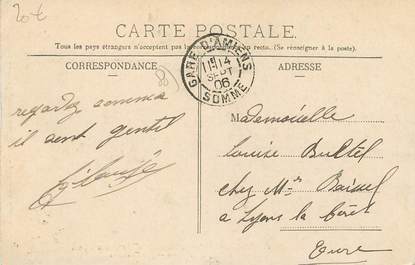 20€
CARTE POSTALE.
Tous les pays étrangers n'acceptent pas la au recto. (Se renseigner à la poste).
CORRESPONDANCE
ADRESSE
GARE D'AMIENS
14
SEPT
06
SOMME
regardez comme
il sont gentil
Mademoiselle
Louise Bultel
chez Mr
à Lyons la Forêt
Eure